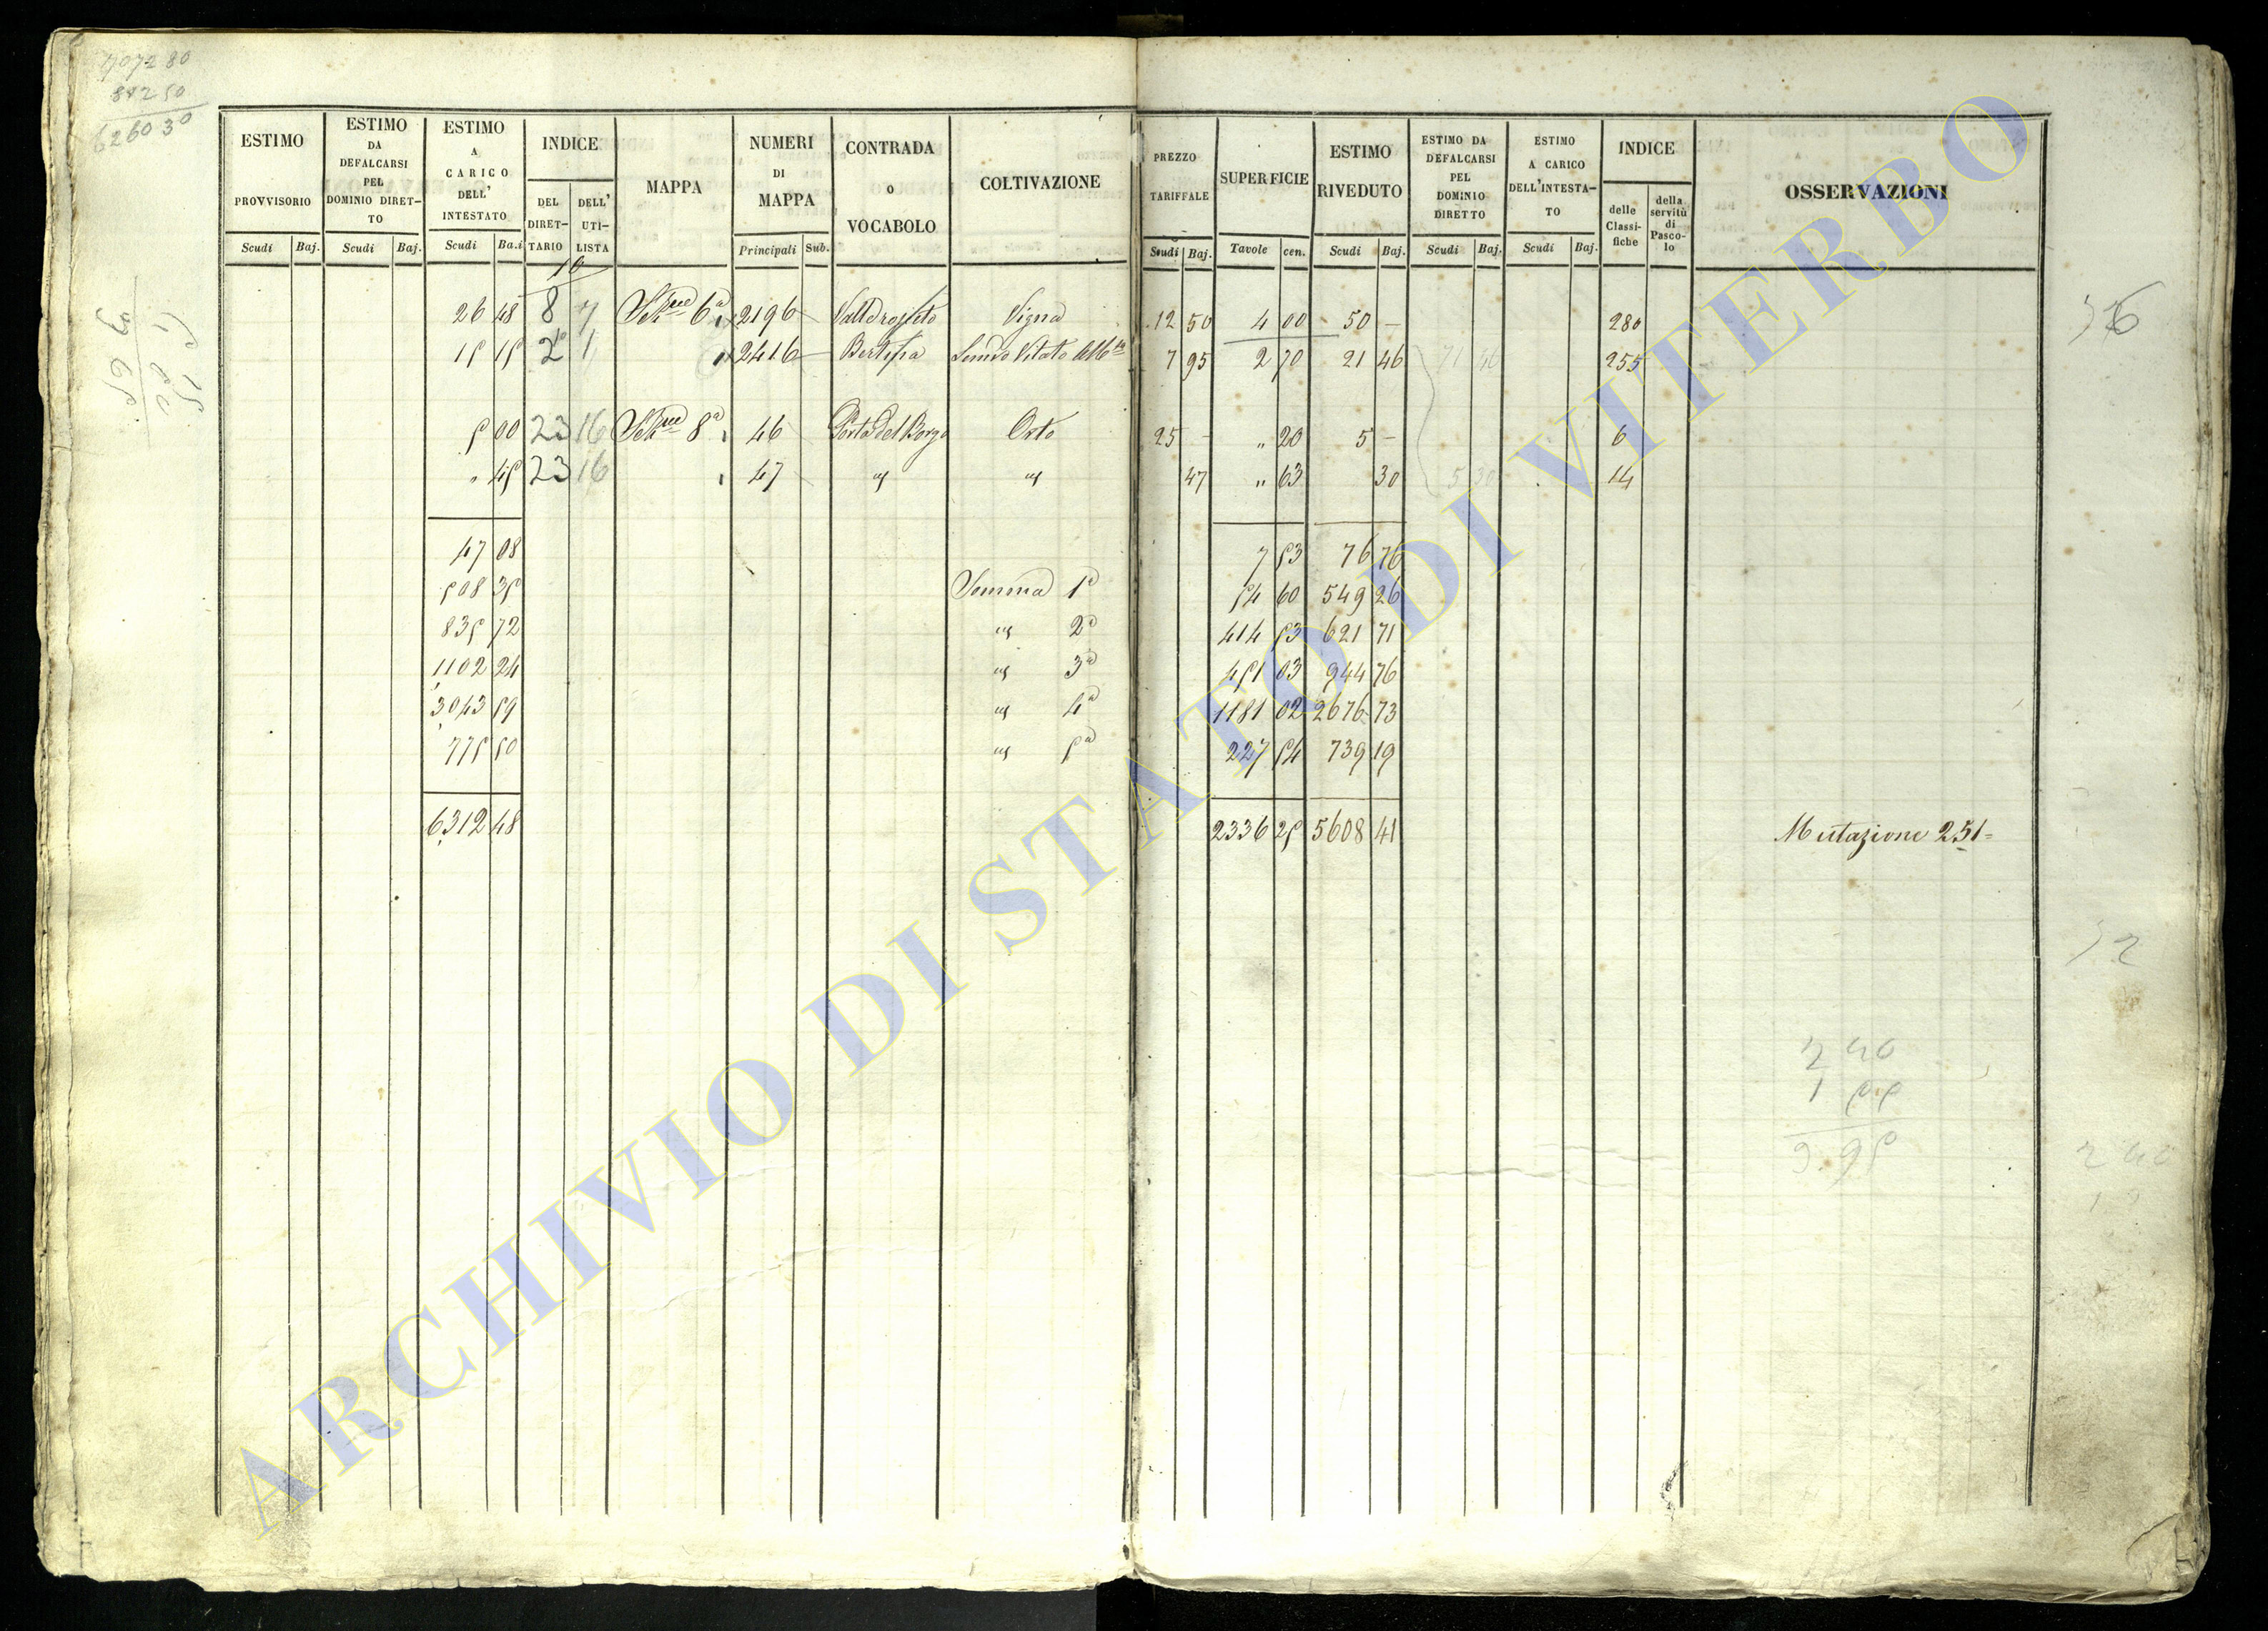 707280
6260 30
ESTIMO PROVVISORIO
ESTIMO DA DEFALCARSI PEL DOMINIO DIRET-TO
ESTIMO A CARICO DELL' INTESTATO
INDICE
DEL DIRET-TARIO
DELL' UTI-LISTA
MAPPA
NUMERI DI MAPPA
CONTRADA o VOCABOLO
COLTIVAZIONE
PREZZO TARIFFALE
SUPERFICIE
ESTIMO RIVEDUTO
ESTIMO DA DEFALCARSI PEL DOMINIO DIRETTO
ESTIMO A CARICO DELL'INTESTA-TO
INDICE
delle Classi-fiche
della servitù di Pasco-lo
OSSERVAZIONI
Scudi Baj. Scudi Baj. Scudi Ba.i Principali Sub. Scudi Baj. Tavole cen. Scudi Baj. Scudi Baj. Scudi Baj.
10
26 48 8 7 6a 2196 Vigna 12 50 4 00 50 - 280
15 15 2 1 2416 Vitato 7 95 2 70 21 46 71 46 255
5 00 23 16 8a 46 Porta del Borgo Orto 25 - " 20 5 - 6
" 45 23 16 47 " " 47 " 63 30 5 30 14
47 08 7 53 76 76
508 35 Somma 1a 54 60 549 26
835 72 " 2a 414 53 621 71
1102 24 " 3a 451 03 944 76
3043 59 " 4a 1181 02 2676 73
775 50 " 5a 227 54 739 19
6312 48 2336 25 5608 41 Mutazione 251=
2 40
1 55
3.95
ARCHIVIO DI STATO DI VITERBO